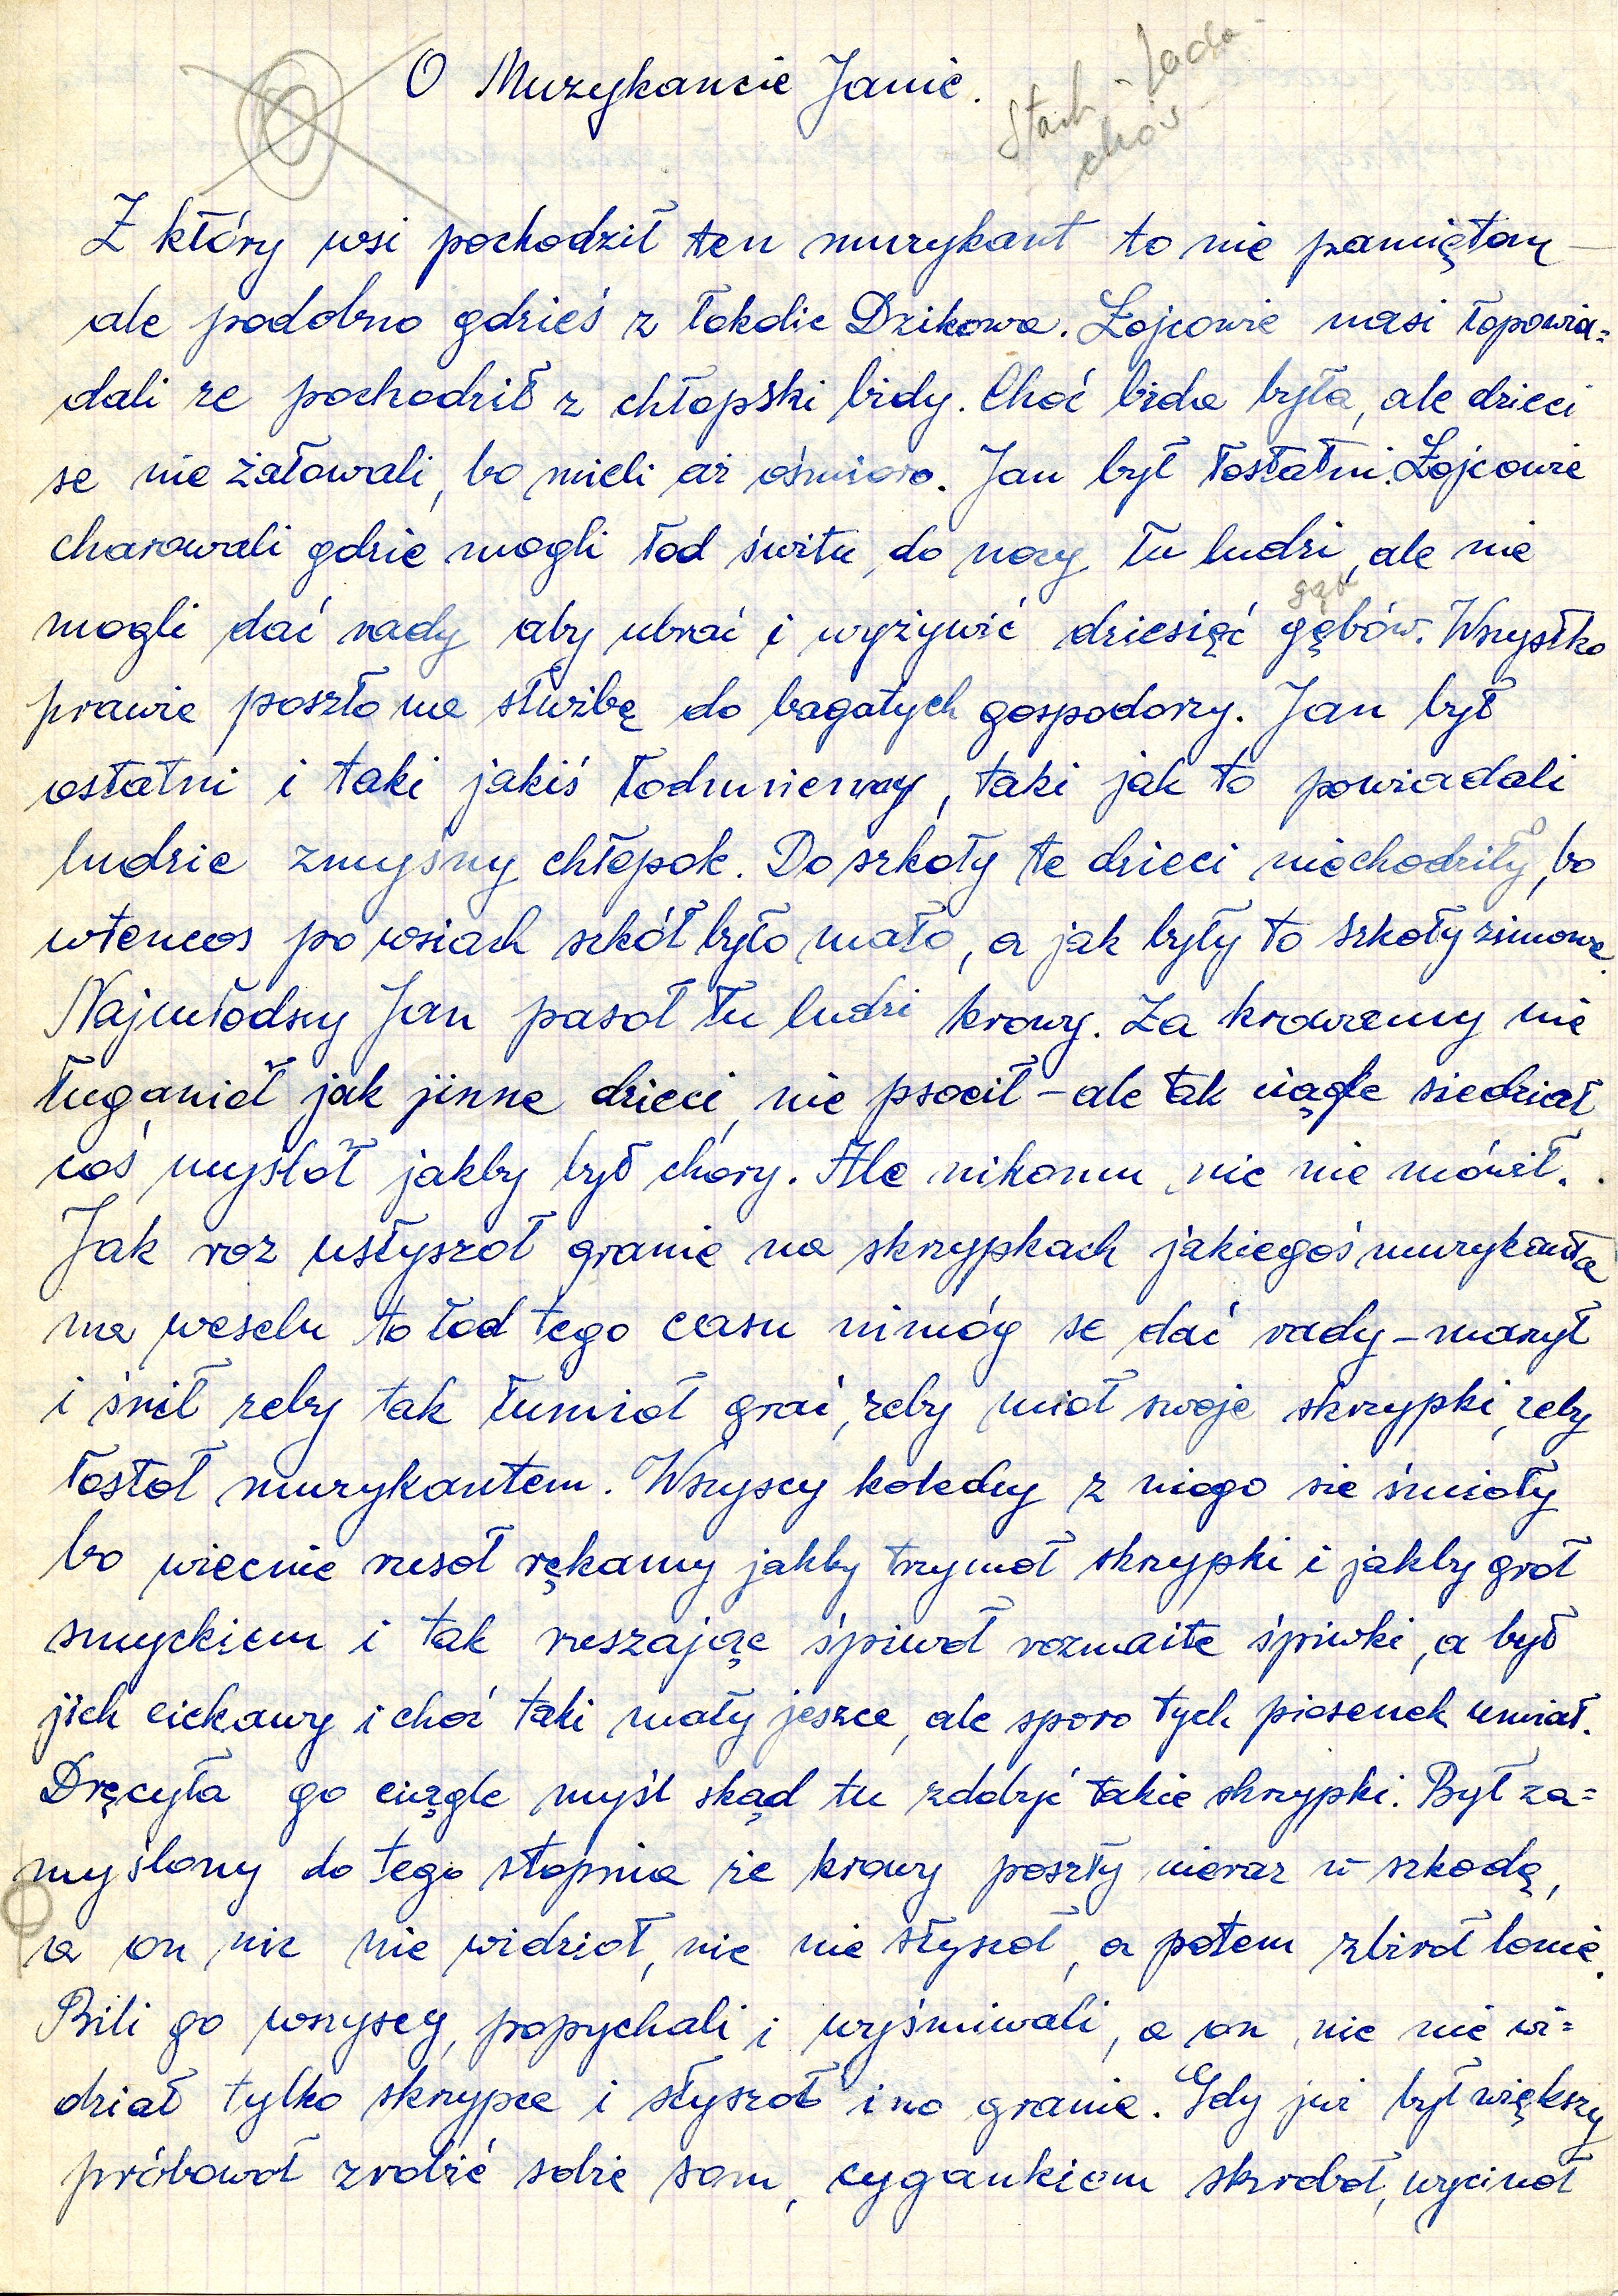 O Muzykancie Janie.
Stach
Z który wsi pochodził ten muzykant to nie pamiętom —
ale podobno gdzieś z łokolic Dzikowa. Łojcowie nasi łopowia=
dali ze pochodził z chłopski bidy. Choć bida była, ale dzieci
se nie żałowali, bo mieli aż ośmioro. Jan był łostatni. Łojcowie
charowali gdzie mogli łod świtu, do nocy łu ludzi, ale nie
gąb
mogli dać rady aby ubrać i wyżywić dziesięć gębów. Wszystko
prawie poszło na służbę do bogatych gospodorzy. Jan był
ostatni i taki jakiś łodmienny, taki jak to powiadali
ludzie zmyśny chłopok. Do szkoły te dzieci niechodziły, bo
wtencos po wsiach szkół było mało, a jak były to szkoły zimowe.
Najmłodszy Jan pasoł łu ludzi krowy. Za krowamy nie
ługanioł jak jinne dzieci, nie psocił – ale tak ciągle siedział
coś myśloł jakby był chory. Ale nikomu nic nie mówił.
Jak roz usłyszoł granie na skrzypkach jakiegoś muzykanta
na weselu to łod tego casu nimóg se dać rady – marzył
i śnił zeby tak łumioł grać, zeby mioł swoje skrzypki, zeby
łostoł muzykantem. Wszyscy koledzy z niego sie śmioły
bo wiecnie rusoł rękamy jakby trzymoł skrzypki i jakby groł
smyckiem i tak ruszając śpiwoł rozmaite śpiwki, a był
jich ciekawy i choć taki mały jeszce, ale sporo tych piosenek umiał.
Dręcyła go ciągle myśl skąd tu zdobyć takie skrzypki. Był za=
myślony do tego stopnia że krowy poszły nieraz w szkodę,
a on nic nie widzioł, nic nie słyszoł, a potem zbiroł lonie.
Bili go wszyscy, popychali i wyśmiwali, a on nic nie wi=
dział tylko skrzypce i słyszoł ino granie. Gdy już był większy
próbowoł zrobić sobie som, cygankiem skroboł, wycinoł